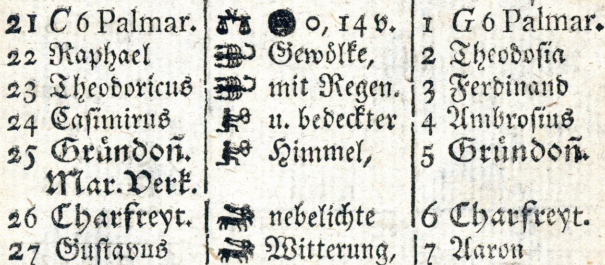 21 C 6 Palmar. ♎ ● 0, 14 v. 1 G 6 Palmar.
22 Raphael Gewölke, 2 Theodosia
23 Theodoricus mit Regen. 3 Ferdinand
24 Casimirus u. bedeckter 4 Ambrosius
25 Gründoñ. Himmel, 5 Gründoñ.
Mar. Verk.
26 Charfreyt. nebelichte 6 Charfreyt.
27 Gustavus Witterung, 7 Aaron